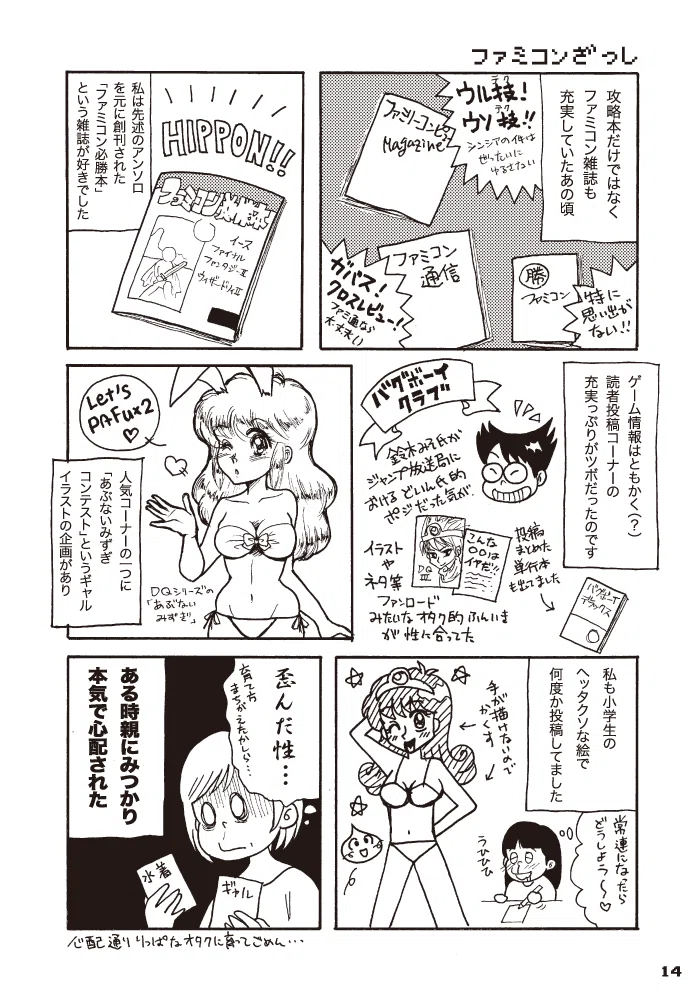 ファミコンざっし
攻略本だけではなく
ファミコン雑誌も
充実していたあの頃
ウル技!
テク
ウソ技!!
テク
シンシアの件は
ぜったいに
ゆるさない
ファミリーコンピュータ
Magazine
ファミコン
通信
ガバス!
クロスレビュー!
ファミ通なら
大丈夫い
勝
ファミコン
特に
思い出が
ない!!
私は先述のアンソロ
を元に創刊された
「ファミコン必勝本」
という雑誌が好きでした
HIPPON!!
ファミコン必勝本
イース
ファイナル
ファンタジーⅢ
ウィザードリィⅡ
ゲーム情報はともかく(?)
読者投稿コーナーの
充実っぷりがツボだったのです
バグボーイ
クラブ
鈴木みそ氏が
ジャンプ放送局に
おける どいん氏的
ポジだった気が
イラスト
や
ネタ等
DQ
Ⅲ
こんな
○○は
イヤだ!!
ファンロード
みたいな オタク的 ふんいき
が 性に合ってた
投稿
まとめた
単行本
も出てました
バグボーイ
デラックス
Let's
PAFu×2
人気コーナーの一つに
「あぶないみずぎ
コンテスト」というギャル
イラストの企画があり
DQシリーズの
「あぶない
みずぎ」
私も小学生の
ヘッタクソな絵で
何度か投稿してました
手が描け
ないので
かくす
常連になったら
どうしよう〜♡
うひひひ
歪んだ性…
育て方
まちがえたかしら…
ある時親にみつかり
本気で心配された
水着
ギャル
心配通り りっぱな オタクに 育ってごめん…
14